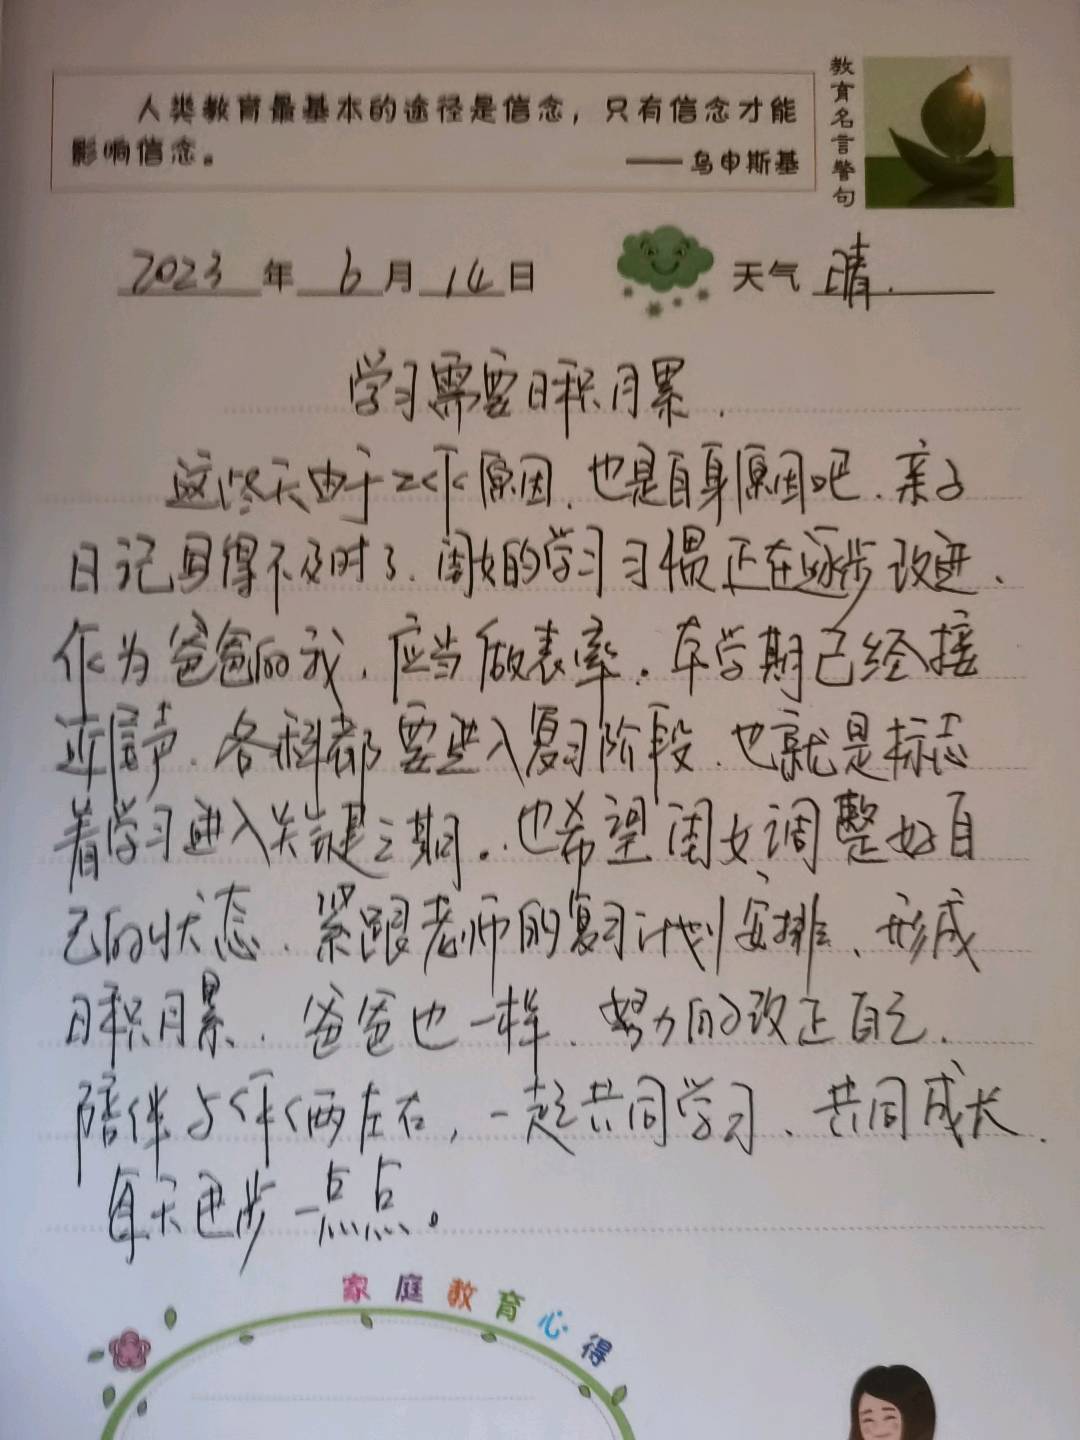 人类教育最基本的途径是信念，只有信念才能
影响信念。
——乌申斯基
教育名言警句
2023年6月14日 天气 晴.
学习需要日积月累.
这些天由于工作原因、也是自身原因吧、亲子
日记写得不及时了、闺女的学习习惯正在逐步改进、
作为爸爸的我、应当做表率。本学期已经接
近尾声、各科都要进入复习阶段、也就是标志
着学习进入关键之期。也希望闺女调整好自
己的状态、紧跟老师的复习计划安排、形成
日积月累、爸爸也一样、努力的改正自己、
陪伴与你俩左右，一起共同学习、共同成长、
每天进步一点点。
家庭教育心得